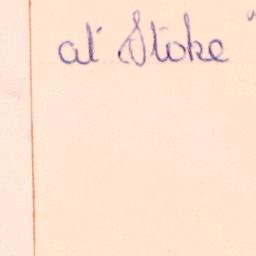 at Stoke "